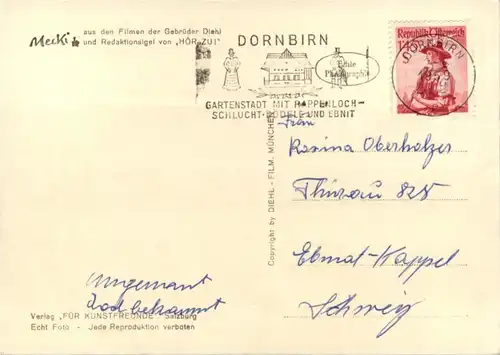 Mecki aus den Filmen der Gebrüder Diehl
und Redaktionsigel von „HÖR ZU!"
DORNBIRN
Echte
Photographie
GARTENSTADT MIT RAPPENLOCH-
SCHLUCHT·BÖDELE UND EBNIT
Republik Österreich
DORNBIRN
Frau
Rosina Oberholzer
Thürau 825
Ebnat-Kappel
Schweiz
Copyright by DIEHL - FILM, MÜNCHEN
Ungenannt
doch bekannt
Verlag „FÜR KUNSTFREUNDE" Salzburg
Echt Foto - Jede Reproduktion verboten